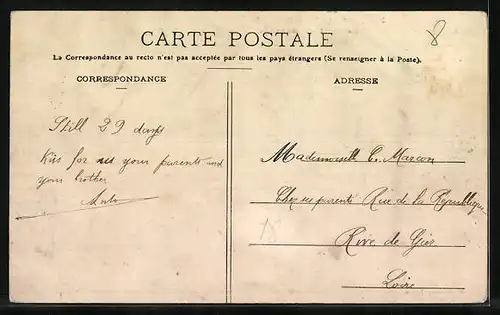 CARTE POSTALE
La Correspondance au recto n'est pas acceptée par tous les pays étrangers (Se renseigner à la Poste).
CORRESPONDANCE
ADRESSE
8
Still 29 days
Kiss for us your parents and
your brother
Mademoiselle C. Marcon
Chez ses parents Rue de la République
Rive de Gier
Loire